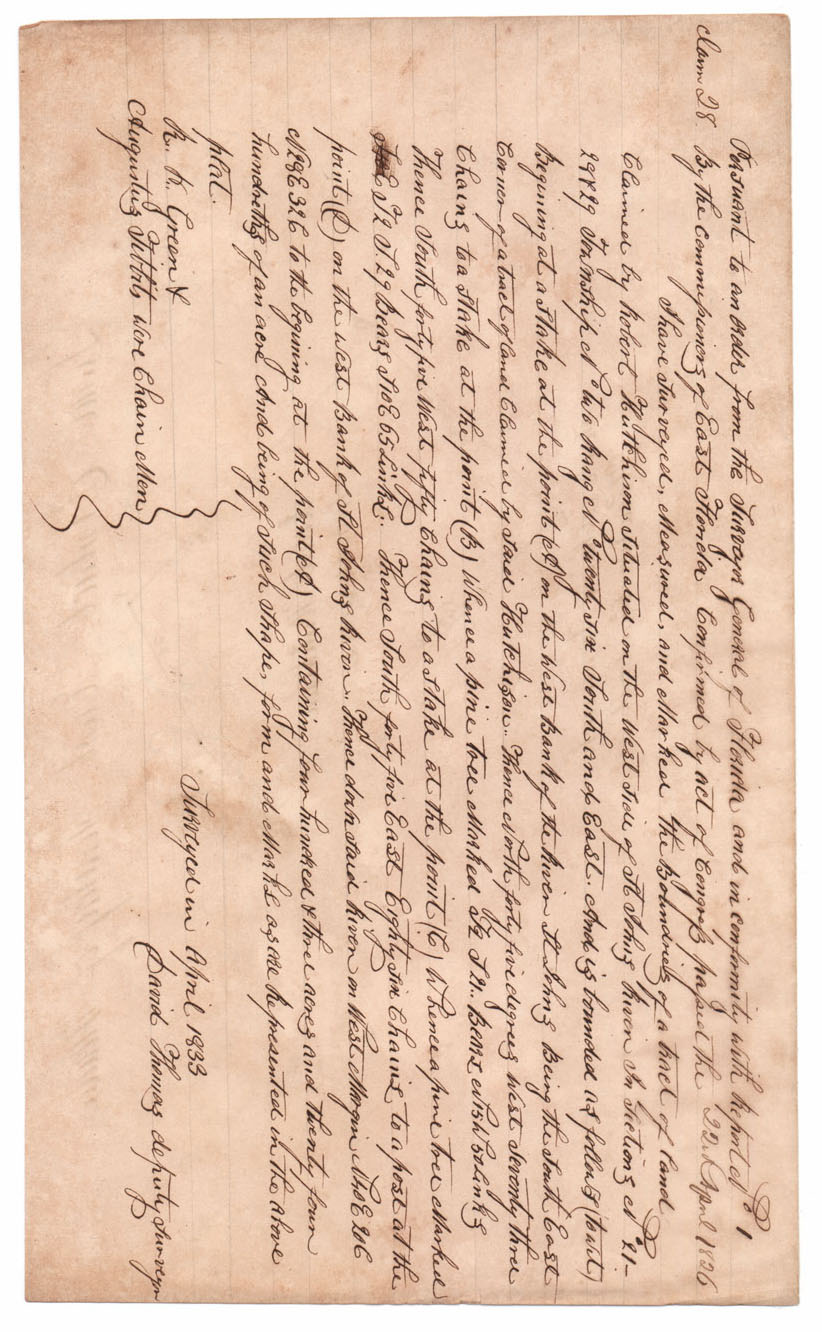 Persuant to an order from the Surveyor General of Florida and in conformity with Report No 1
claim 28. By the commissioners of East Florida Confirmed by act of Congress passed the 22nd April 1826
I have Surveyed, Measured, and Marked the Boundries of a tract of land
Claimed by Robert Hutchison situated on the West side of St Johns River In Sections No 21-
28 & 29 Township No two Range No twenty six South and East. And is bounded as follows (towit)
Begining at a Stake at the point (A) on the West Bank of the River St Johns Being the South East
Corner of a tract of land Claimed by said Hutchison. Thence North forty five degrees West Seventy three
Chains to a Stake at the point (B) Whence a pine tree Marked Bears Links
Thence South forty five West fifty Chains to a Stake at the point (C) Whence a pine tree Marked
S.29 Bears 65 Links. Thence South forty five East Eighty six Chains to a post at the
point (D) on the West Bank of St Johns River. Thence down said River on West Margin
to the begining at the point (A) Containing four hundred & three acres and twenty four
hundreths of an acre And being of Such Shape, form and Marks as are Represented in the above
plat.
R. R. Green &
Augustus Tibbits were Chain Men
Surveyed in April 1833
David Thomas deputy Surveyor